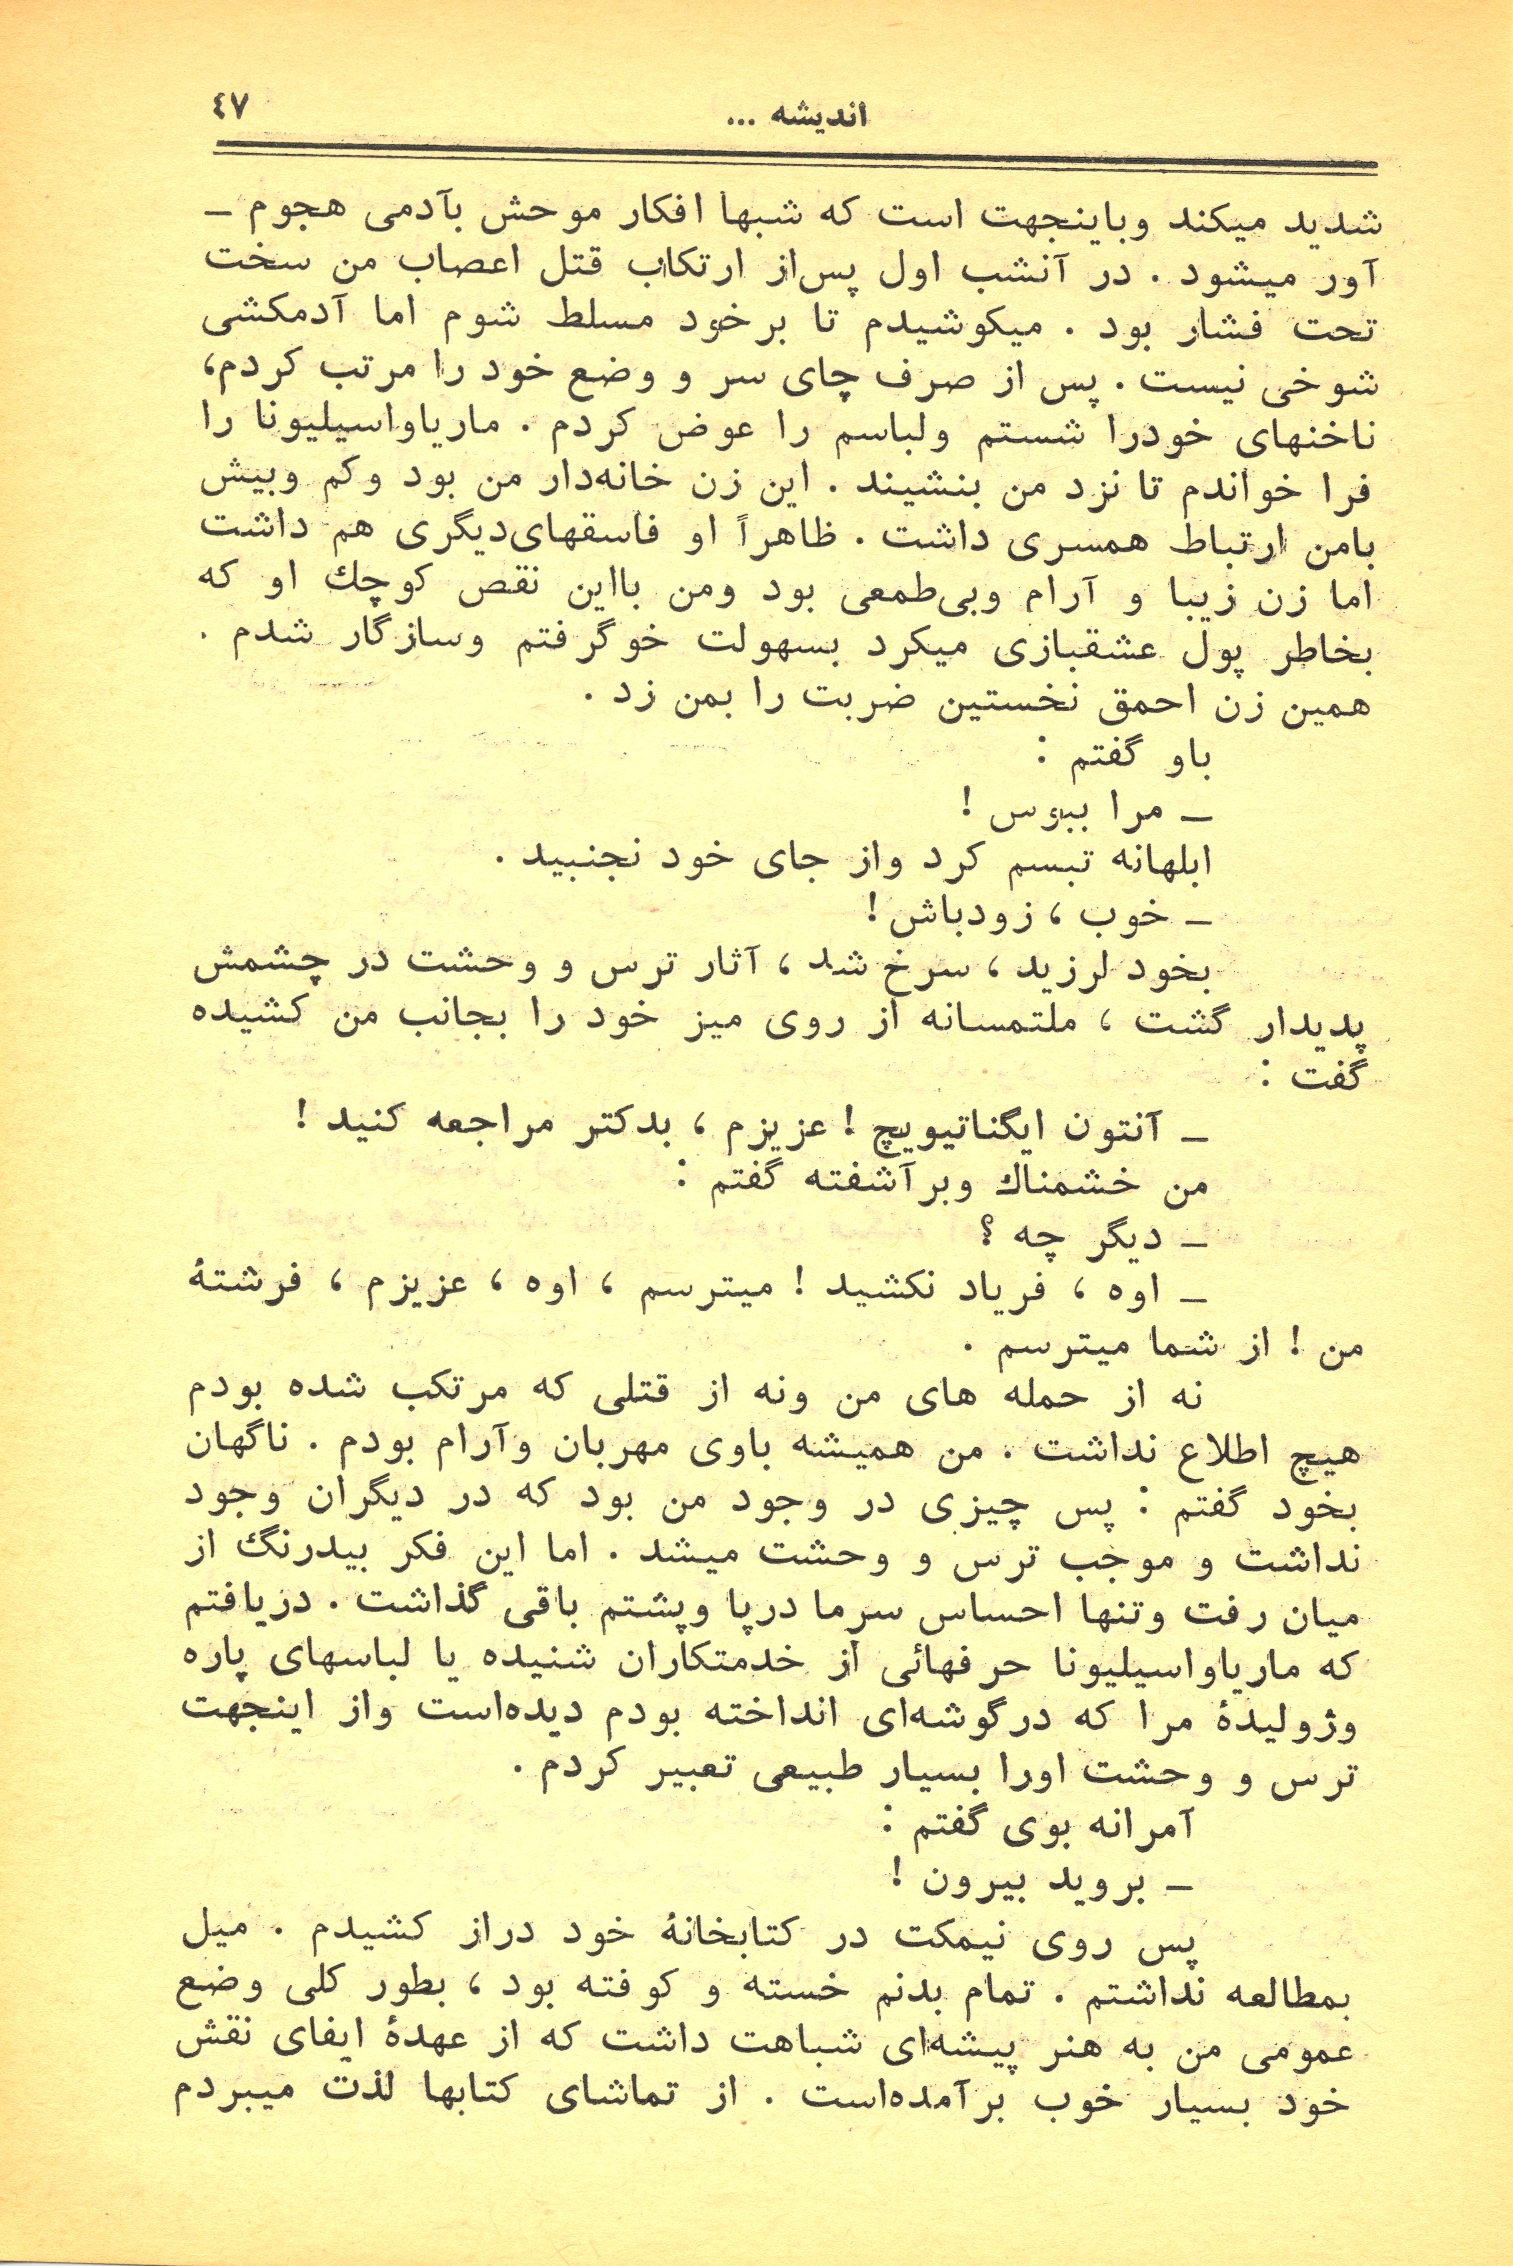 اندیشه ... ٤٧
شدید میکند وباینجهت است که شبها افکار موحش بآدمی هجوم ـ
آور میشود . در آنشب اول پس‌از ارتکاب قتل اعصاب من سخت
تحت فشار بود . میکوشیدم تا برخود مسلط شوم اما آدمکشی
شوخی نیست . پس از صرف چای سر و وضع خود را مرتب کردم،
ناخنهای خودرا شستم ولباسم را عوض کردم . ماریاواسیلیونا را
فرا خواندم تا نزد من بنشیند . این زن خانه‌دار من بود وکم وبیش
بامن ارتباط همسری داشت . ظاهراً او فاسقهای‌دیگری هم داشت
اما زن زیبا و آرام وبی‌طمعی بود ومن بااین نقص کوچك او که
بخاطر پول عشقبازی میکرد بسهولت خوگرفتم وسازگار شدم .
همین زن احمق نخستین ضربت را بمن زد .
باو گفتم :
ـ مرا ببوس !
ابلهانه تبسم کرد واز جای خود نجنبید .
ـ خوب ، زودباش !
بخود لرزید ، سرخ شد ، آثار ترس و وحشت در چشمش
پدیدار گشت ، ملتمسانه از روی میز خود را بجانب من کشیده
گفت :
ـ آنتون ایگناتیویچ ! عزیزم ، بدکتر مراجعه کنید !
من خشمناك وبرآشفته گفتم :
ـ دیگر چه ؟
ـ اوه ، فریاد نکشید ! میترسم ، اوه ، عزیزم ، فرشتهٔ
من ! از شما میترسم .
نه از حمله های من ونه از قتلی که مرتکب شده بودم
هیچ اطلاع نداشت . من همیشه باوی مهربان وآرام بودم . ناگهان
بخود گفتم : پس چیزی در وجود من بود که در دیگران وجود
نداشت و موجب ترس و وحشت میشد . اما این فکر بیدرنگ از
میان رفت وتنها احساس سرما درپا وپشتم باقی گذاشت . دریافتم
که ماریاواسیلیونا حرفهائی از خدمتکاران شنیده یا لباسهای پاره
وژولیدهٔ مرا که درگوشه‌ای انداخته بودم دیده‌است واز اینجهت
ترس و وحشت اورا بسیار طبیعی تعبیر کردم .
آمرانه بوی گفتم :
ـ بروید بیرون !
پس روی نیمکت در کتابخانهٔ خود دراز کشیدم . میل
بمطالعه نداشتم . تمام بدنم خسته و کوفته بود ، بطور کلی وضع
عمومی من به هنر پیشه‌ای شباهت داشت که از عهدهٔ ایفای نقش
خود بسیار خوب برآمده‌است . از تماشای کتابها لذت میبردم